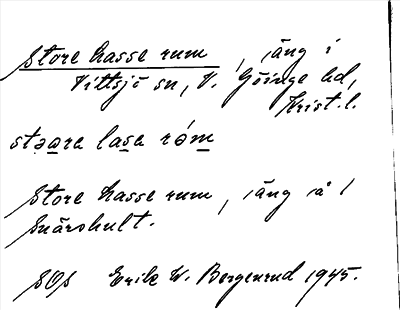 Store Lasse rum, äng i
Vittsjö sn, V. Göinge hd,
Krist. l.
staara lasa róm
Store Lasse rum, äng å 1
Snärshult.
SOS Erik W. Bergenrud 1945.